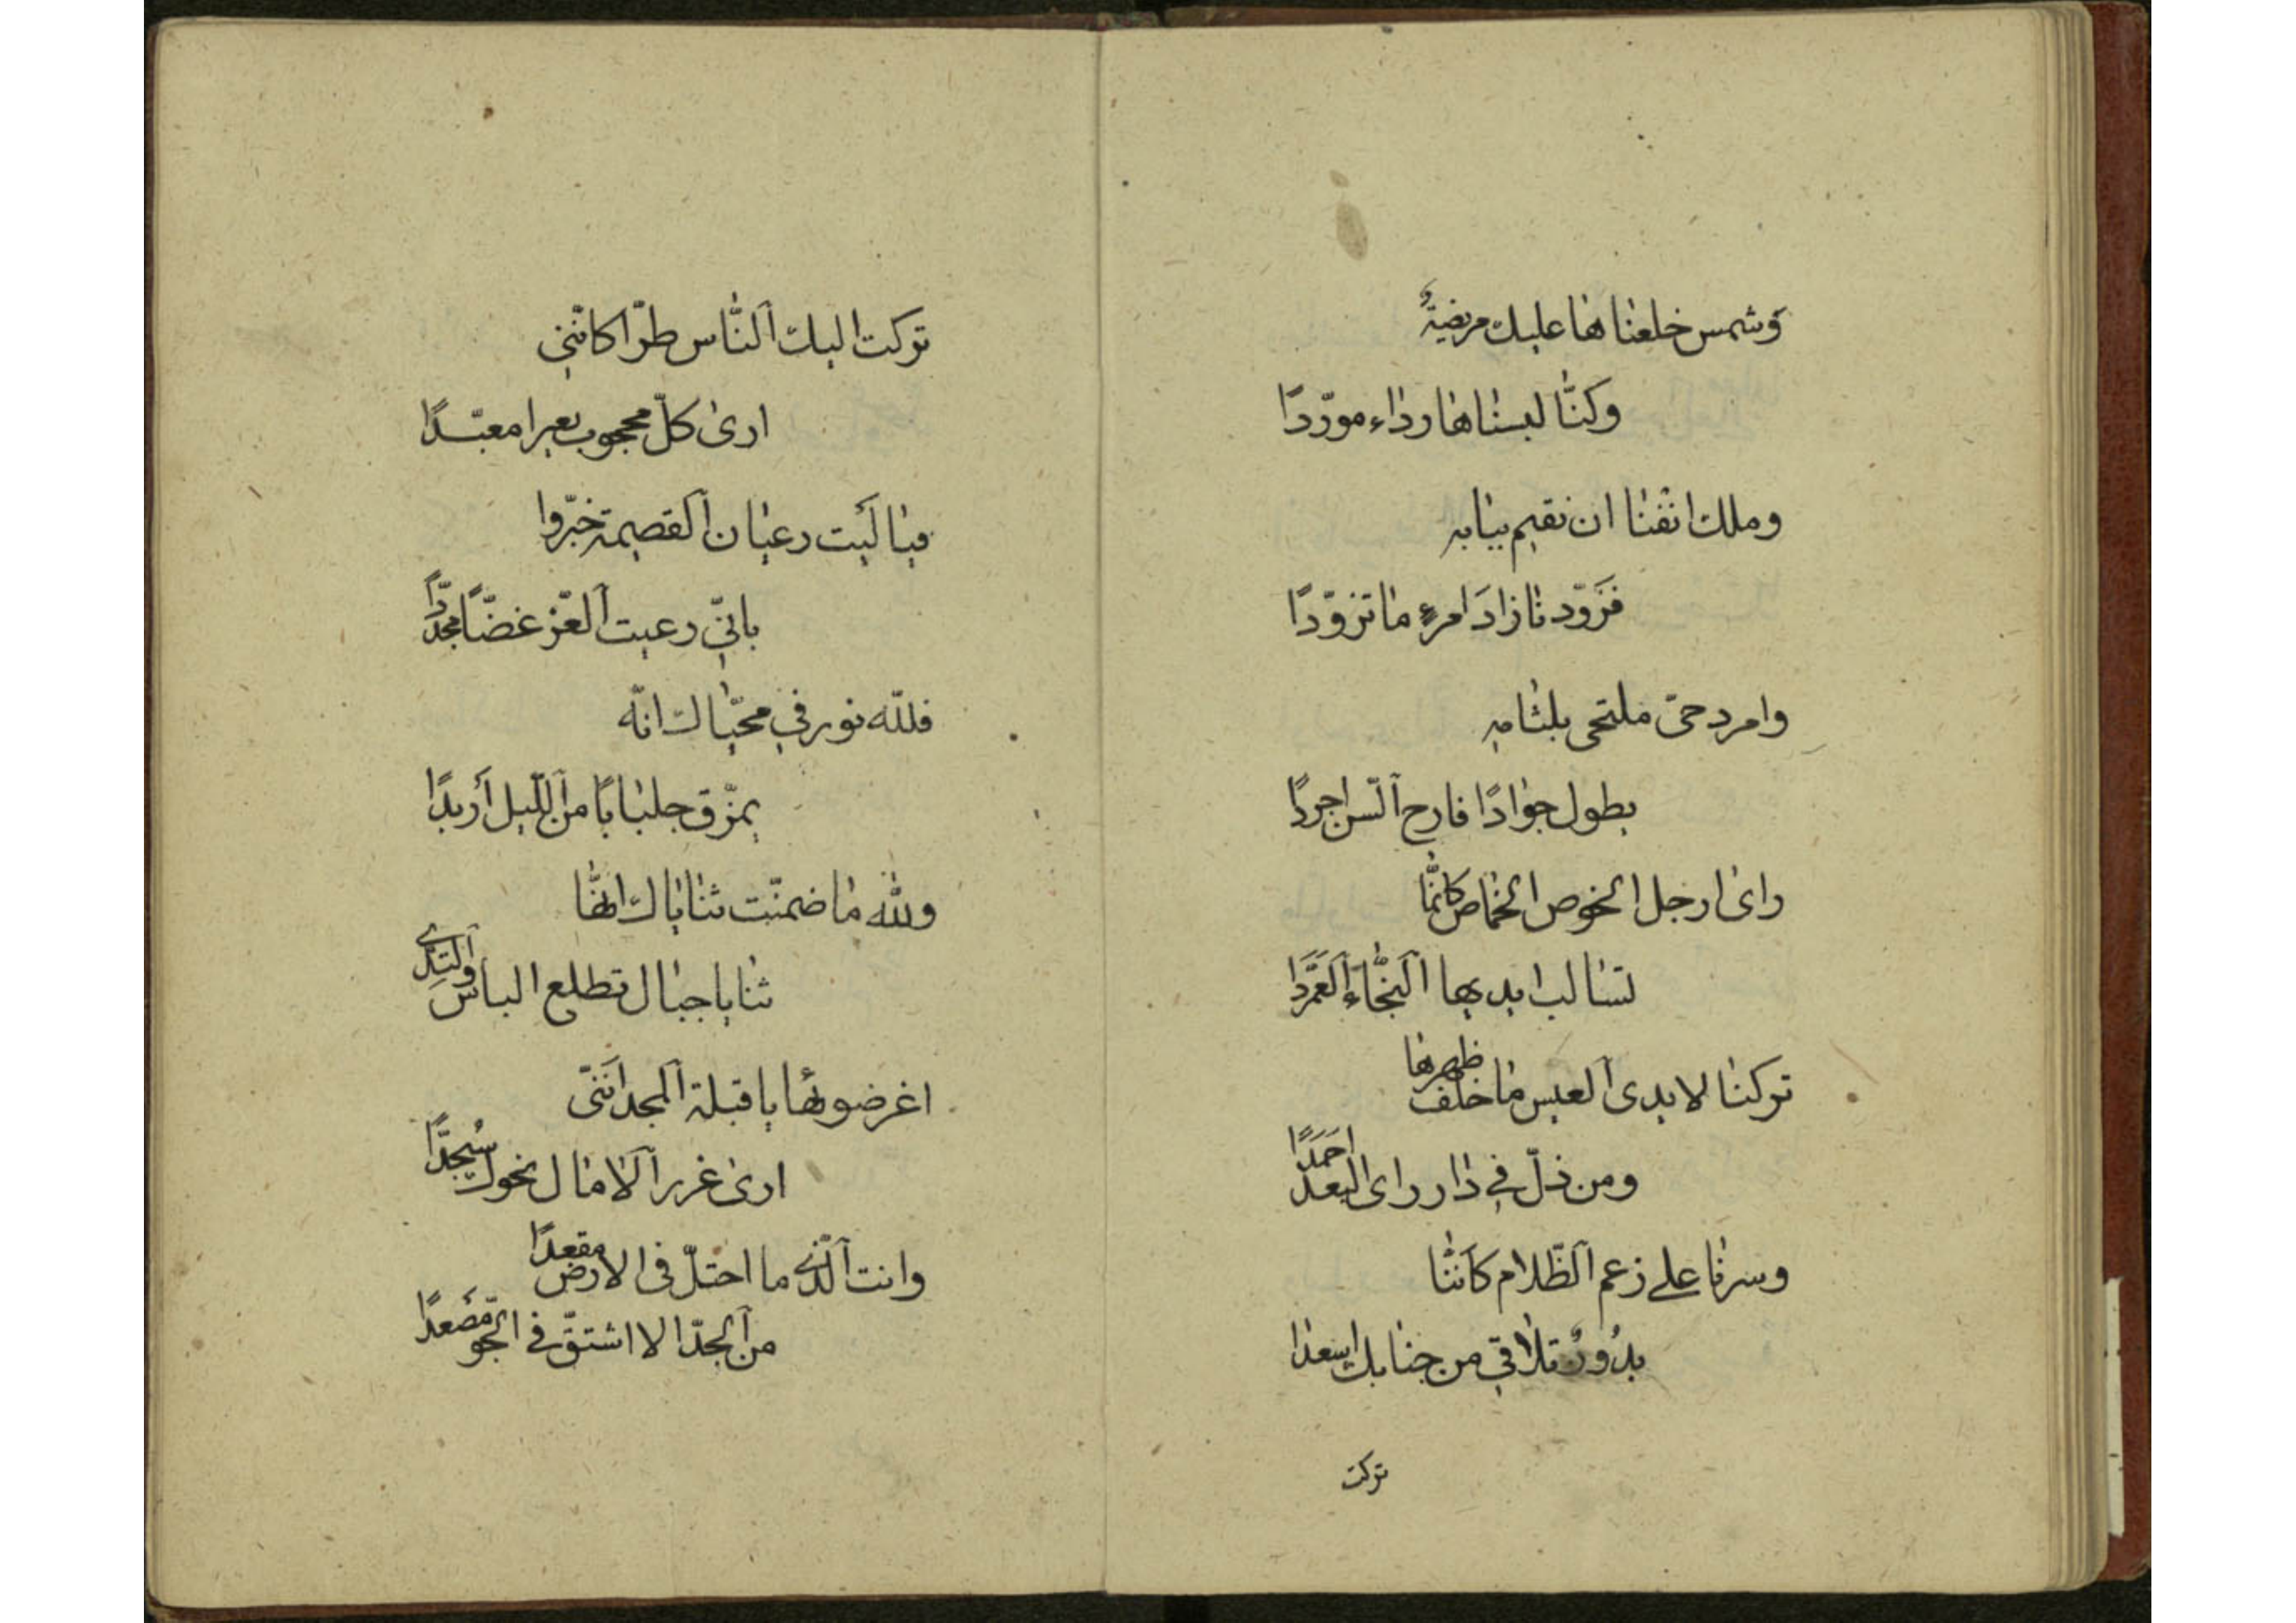 وشمس خلعناها عليك مريضةً
وكنّا لبسناها رداء مورّدًا
وملك انفنا ان نقيم ببابه
فزَوّدنا زادَ امرءٍ ما تزوّدًا
وامرد حىّ ملتحى بلثامه
يطول جوادًا قارح السّن اجردًا
راى ارجل الخوص الخماص كانمّا
تسالب ايديها النّجاءَ العَمَّرَدَا
تركنا لايدى العيس ما خلف ظهرها
ومن ذلّ في دار راى البعد احمَدًا
وسرنا على زعم الظّلام كاَنّنا
بدُورٌ تلاقي من جنابك اسعدا
تركت
تركت اليك النّاس طرّا كانّني
ارى كلّ محجوب بعيرا معبّدًا
فيا لَيت رعيان القصيمة خبّروا
بانّي رعيت العّز غضّا مجدّدًا
فللّه نور في محيّاك انّه
يمزّق جلبابًا من اللّيل أربدًا
ولله ما ضمنّت ثناياك انهّا
ثنايا جبال تطلع الباس والنّدى
اغر ضوئها يا قبلة المجد انَنّى
ارى غرر الامال نحوك سُجدًّا
وانت الّذى ما احتلّ فى الارض مقعدًا
من الجدّ الا اشتقّ في الجو مَصَعدًا